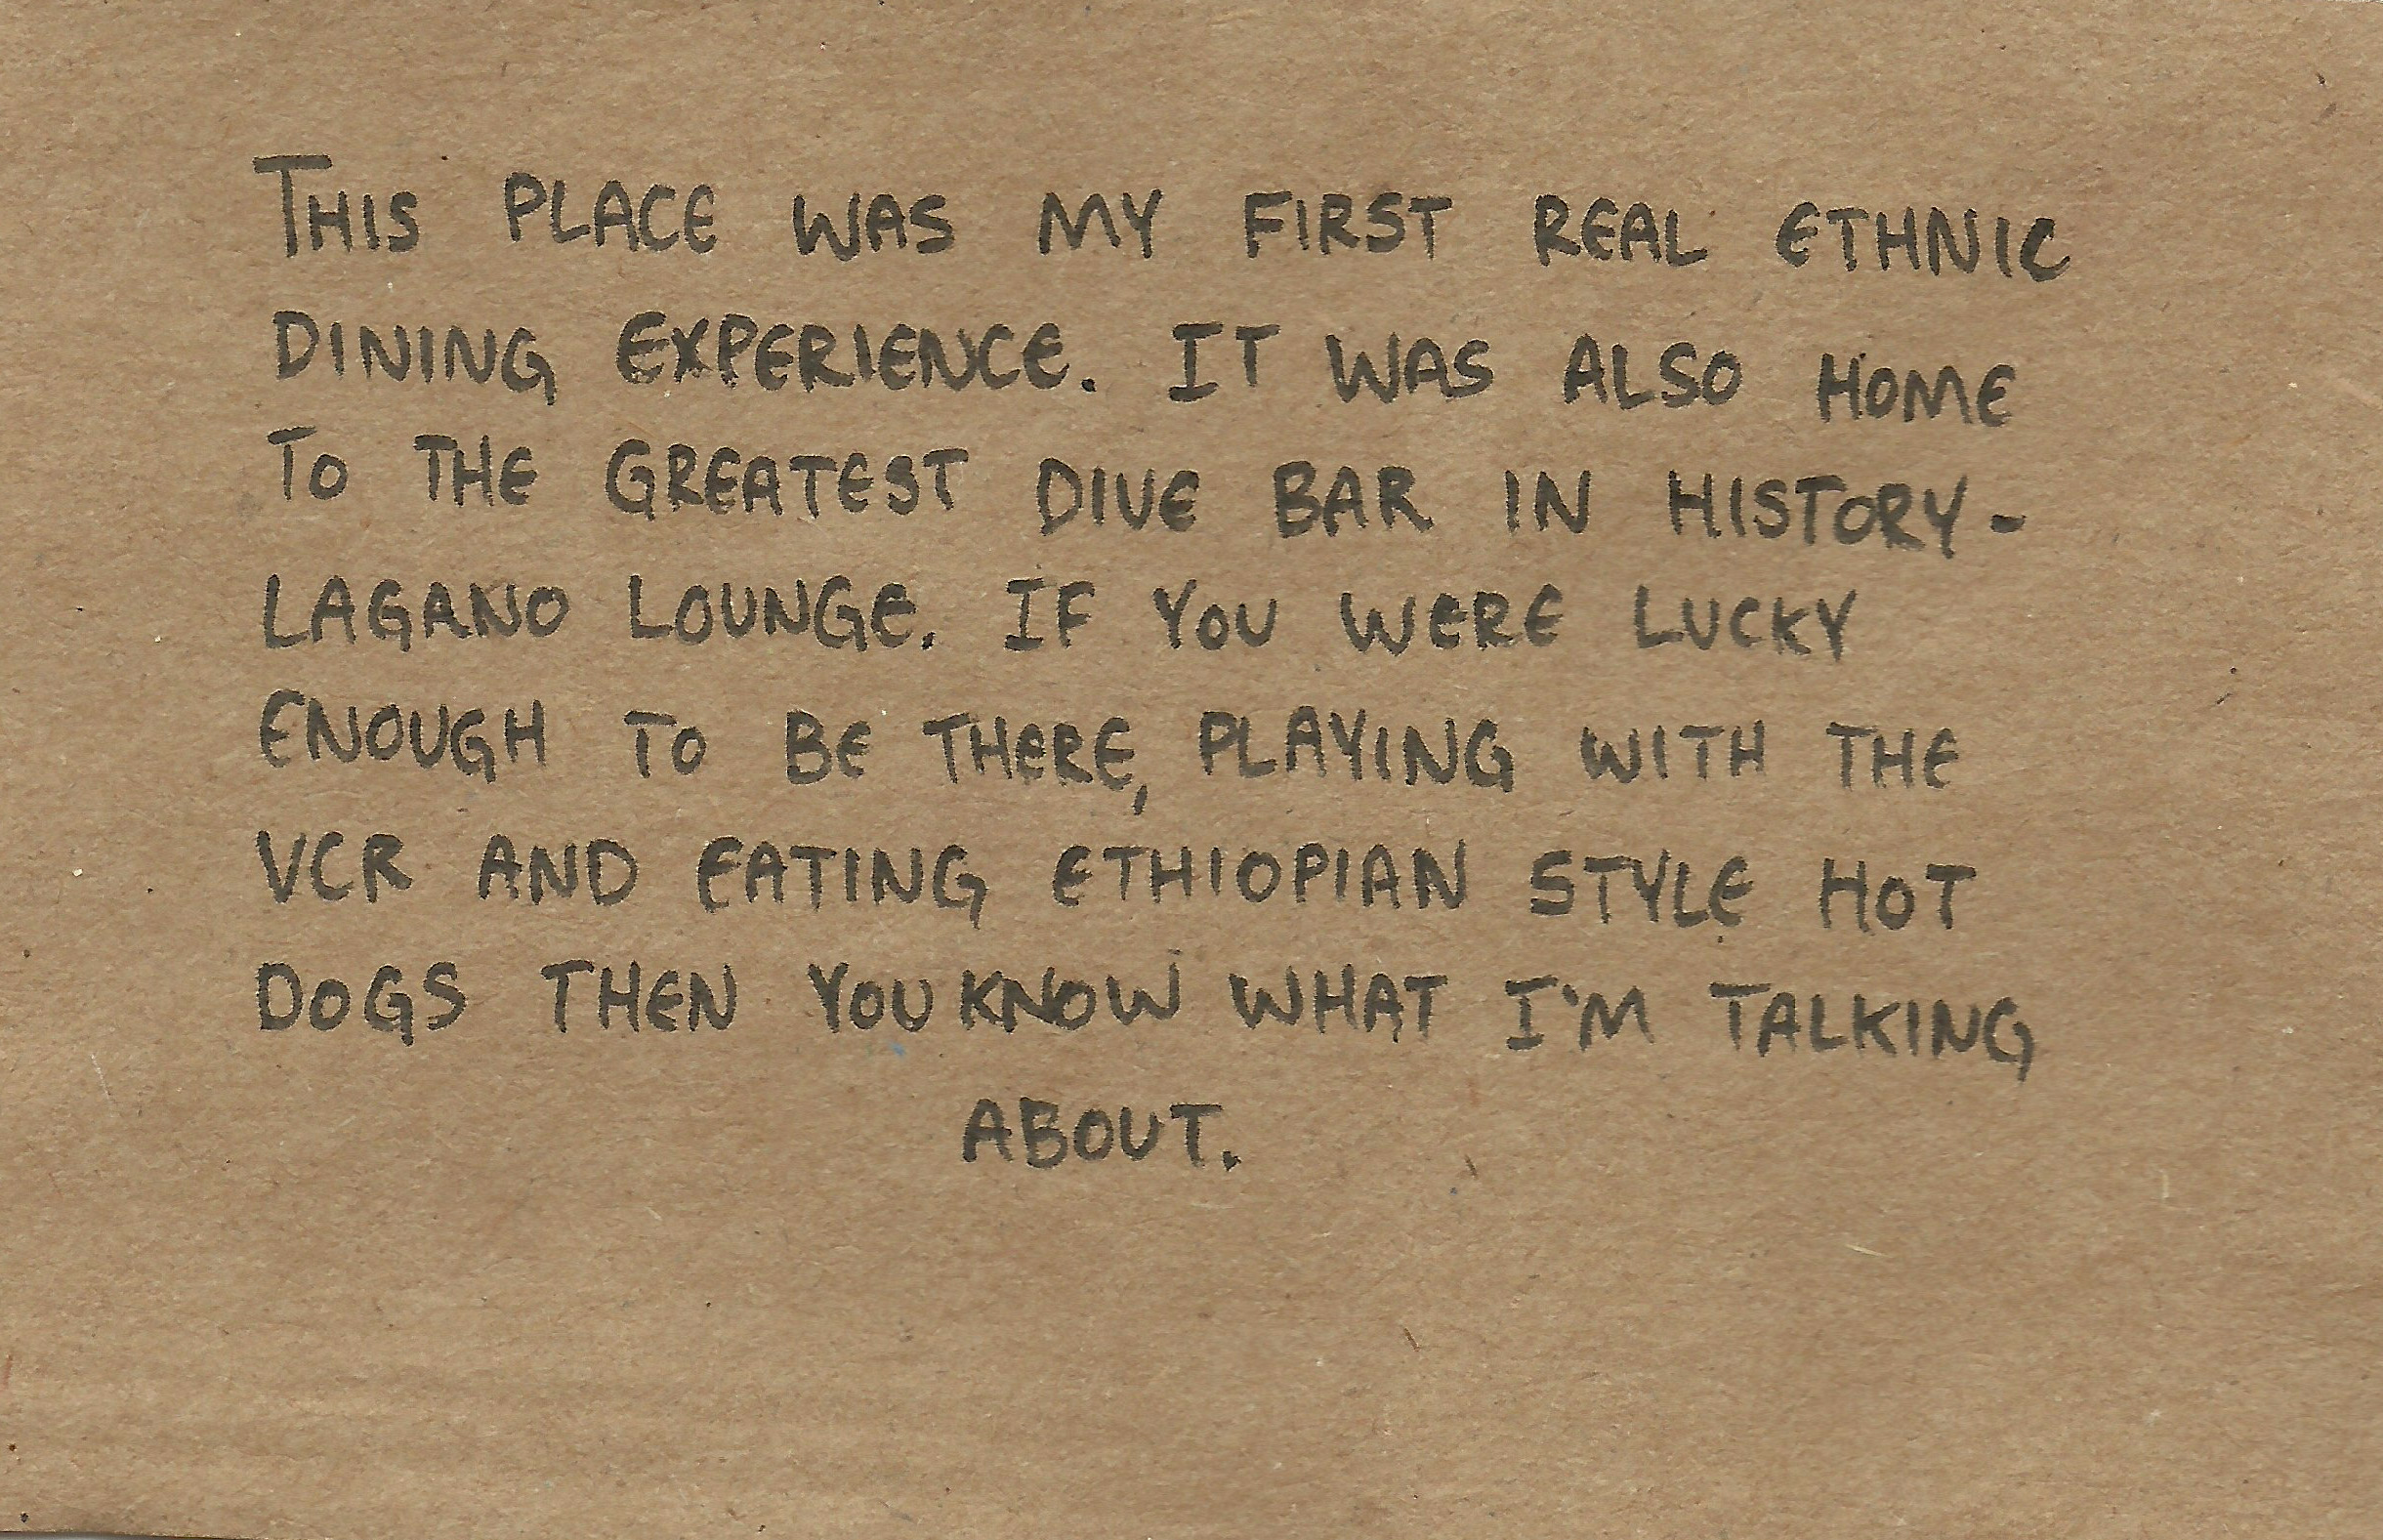 THIS PLACE WAS MY FIRST REAL ETHNIC
DINING EXPERIENCE. IT WAS ALSO HOME
TO THE GREATEST DIVE BAR IN HISTORY-
LAGANO LOUNGE. IF YOU WERE LUCKY
ENOUGH TO BE THERE, PLAYING WITH THE
VCR AND EATING ETHIOPIAN STYLE HOT
DOGS THEN YOU KNOW WHAT I'M TALKING
ABOUT.